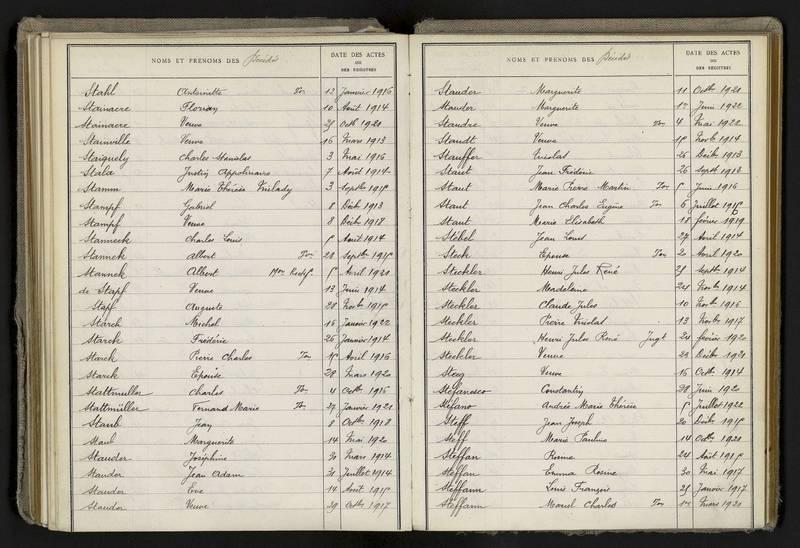 NOMS ET PRÉNOMS DES Décédés
DATE DES ACTES
OU
DES REGISTRES
Stahl Antoinette Ton 12 Janvier 1916
Stainacre Florian 10 Août 1914
Stainacre Veuve Octb 1920
Stainville Veuve 16 Mars 1913
Staiguely Charles Stanislas 3 Mai 1916
Stala Justin Appolinaire 7 Août 1914
Stamm Marie Thérèse 3 Septb
Stampf Gabriel 8 Décb 1913
Stampf Veuve 8 Décb 1918
Stanneck Charles Louis Août 1914
Stanneck Albert Ton 20 Septb
Stanneck Albert Avril 1920
de Stapf Veuve 13 Juin 1914
Stapf Auguste 20 Novb
Starch Michel 16 Janvier 1922
Starck Frédéric 26 Janvier 1914
Starck Pierre Charles Ton Avril 1916
Starck Epouse 28 Mars 1920
Stattmuller Charles Ton 4 Octb 1916
Stattmüller Fernand Marie Ton 29 Janvier 1921
Staub Jean 8 Octb 1918
Staub Marguerite 14 Mai 1920
Stauder Joséphine 30 Mars 1914
Stauder Jean Adam 30 Juillet 1914
Stauder Eve 14 Août
Stauder Veuve 29 Octb 1917
NOMS ET PRÉNOMS DES Décédés
DATE DES ACTES
OU
DES REGISTRES
Stauder Marguerite 11 Octb 1920
Stauder Marguerite Juin 1922
Staudre Veuve Ton 4 Mai 1922
Staudt Veuve Novb 1914
Stauffer Nicolas 26 Décb 1913
Staut Jean Frédéric 26 Septb 1913
Staut Marie Pierre Martin Ton Juin 1916
Staut Jean Charles Eugène Ton 6 Juillet
Staut Marie Elisabeth 18 février 1919
Stébel Jean Louis 29 Avril 1914
Steck Epouse Ton 20 Avril 1920
Steckler Henri Jules René Septb 1914
Steckler Madeleine 24 Novb 1914
Steckler Claude Jules 10 Novb 1916
Steckler Pierre Nicolas 13 Novb 1917
Steckler Henri Jules René Jugt 24 février 1920
Steckler Veuve 21 Décb 1921
Steeg Veuve 16 Octb 1914
Stefanesco Constantin 29 Juin 1920
Stefano Andrée Marie Thérèse Juillet 1922
Steff Jean Joseph 20 Décb
Steff Marie Pauline 14 Octb 1920
Steffan Rosine 24 Août
Steffan Emma Rosine 30 Mai 1917
Steffann Louis François Janvier 1917
Steffann Marcel Charles Ton Mars 1920